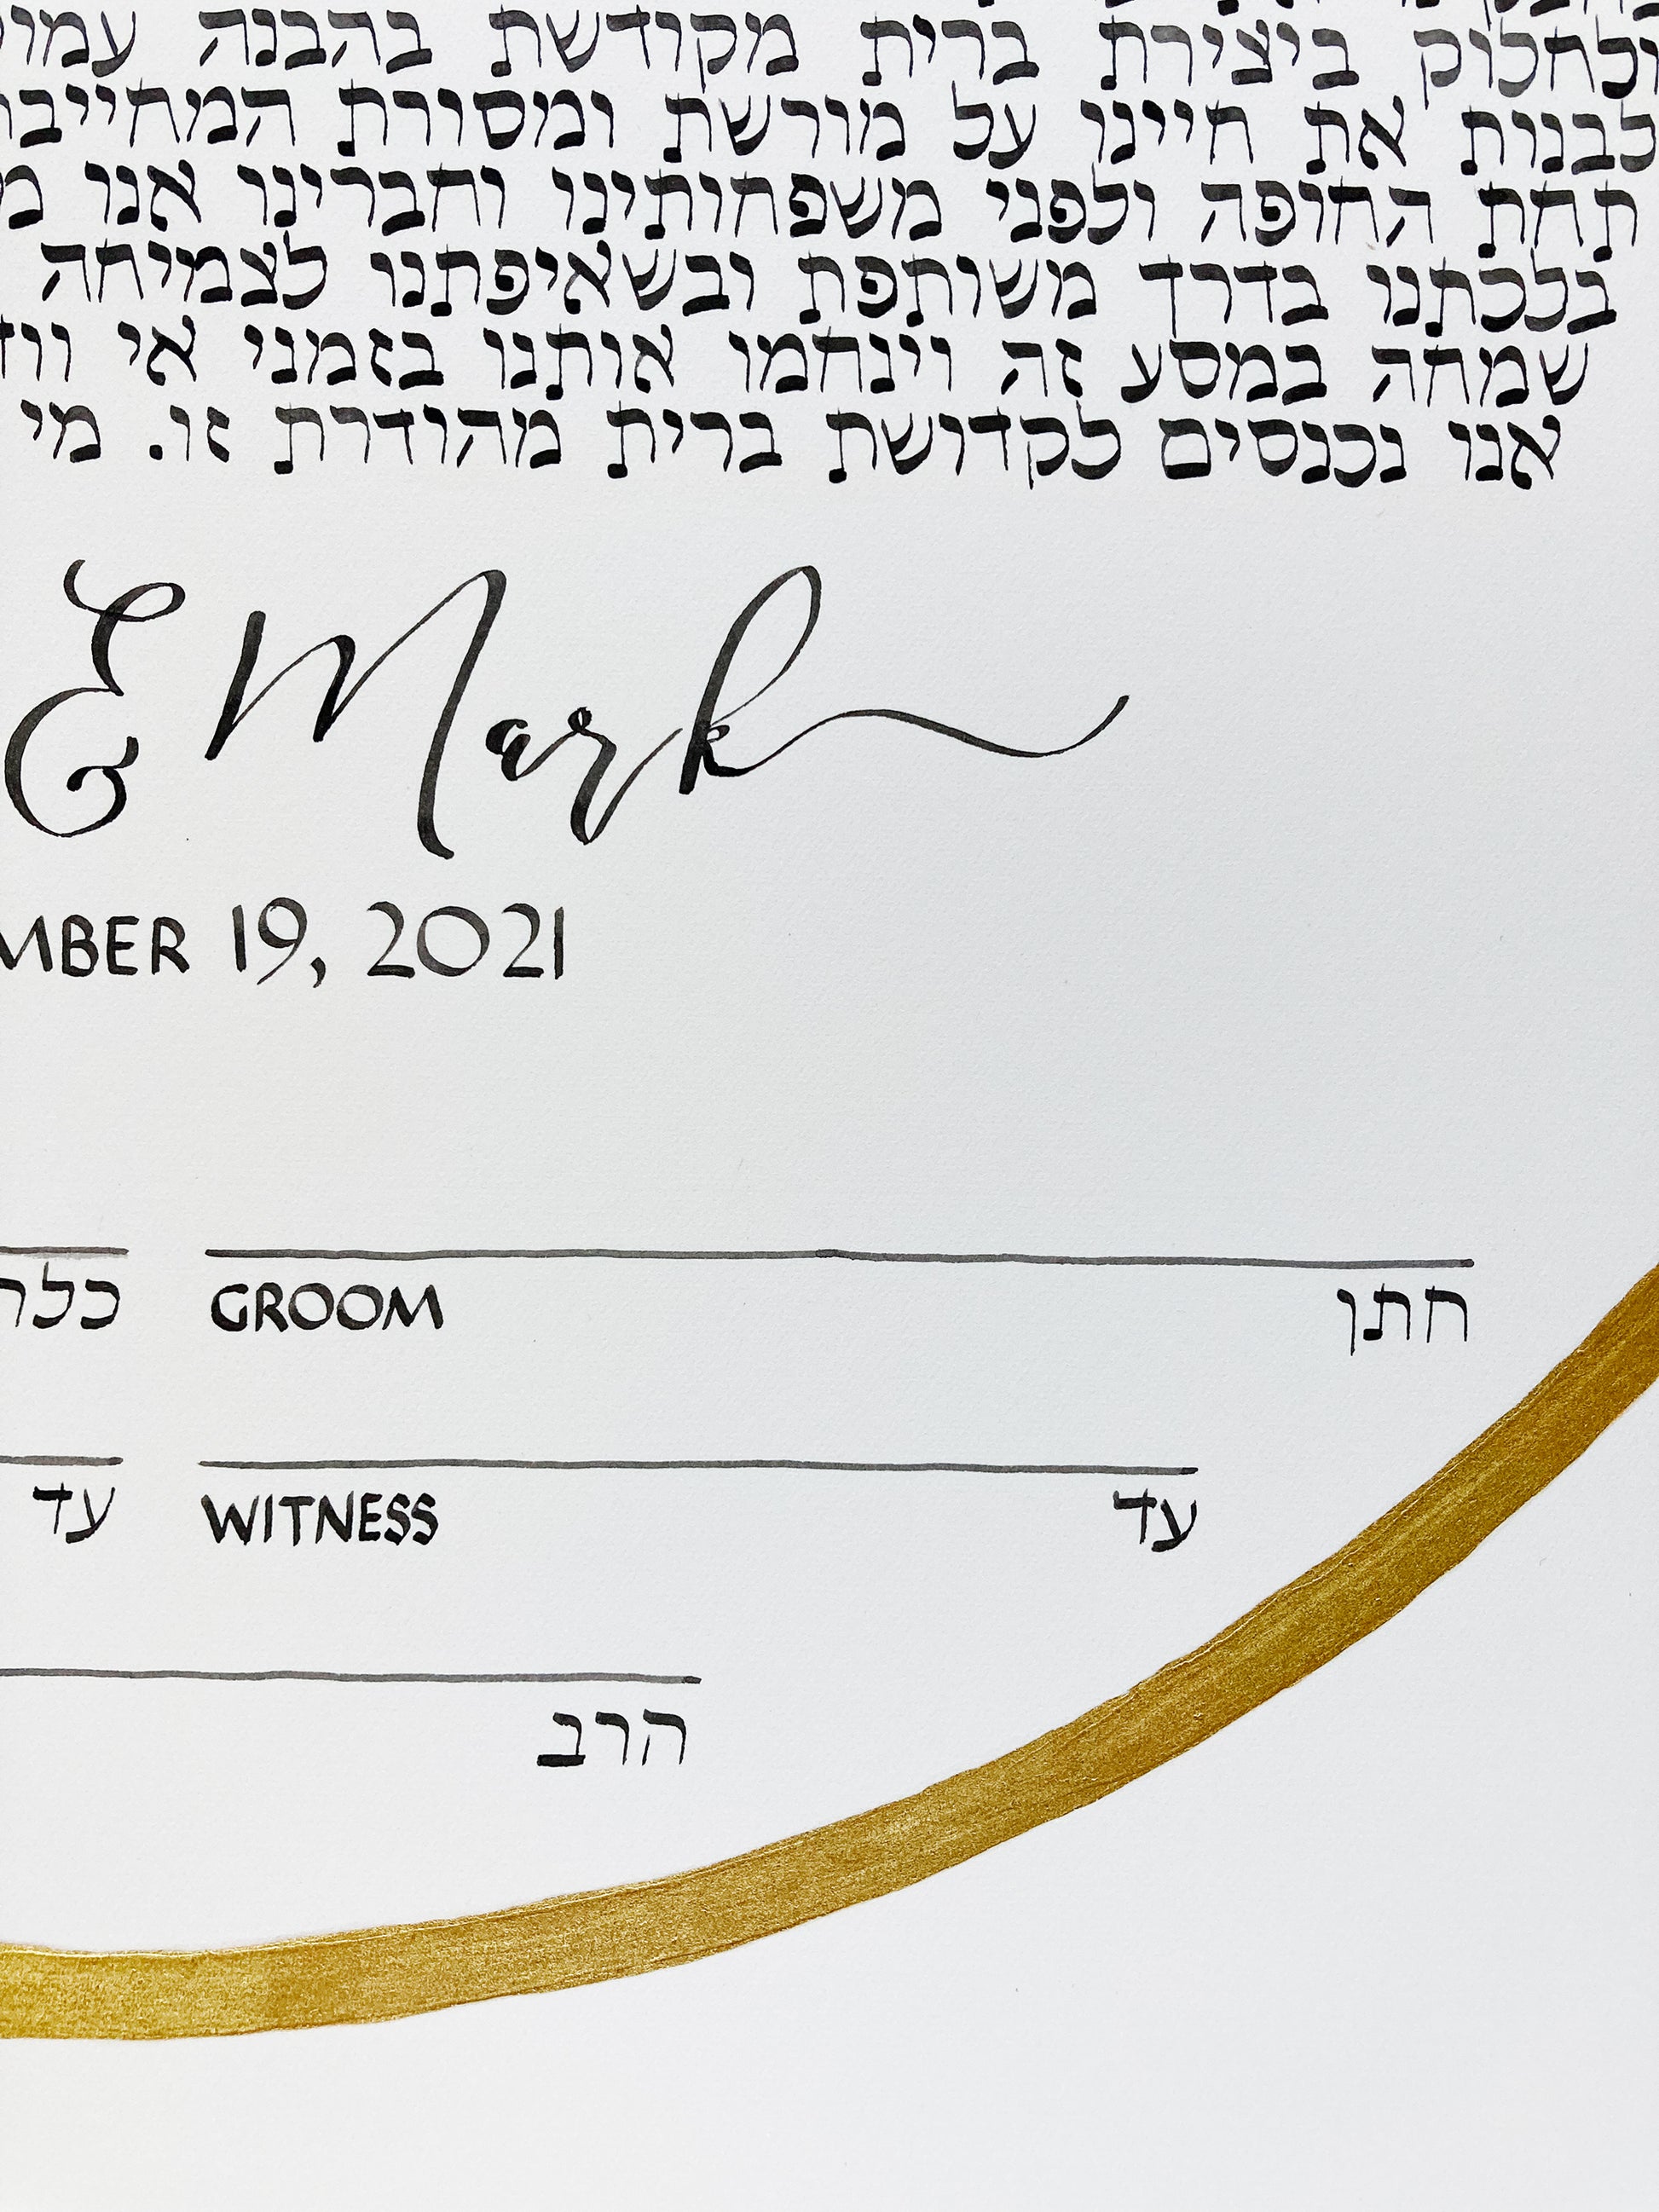 ולחלוק ביצירת ברית מקודשת בהבנה
לבנות את חיינו על מורשת ומסורת
תחת החופה ולפני משפחותינו וחברינו אנו
בלכתנו בדרך משותפת ובשאיפתנו לצמיחה
שמחה במסע זה וינחמו אותנו בזמני אי
אנו נכנסים לקדושת ברית מהודרת זו. מי
& Mark
MBER 19, 2021
GROOM חתן
עד WITNESS עד
הרב